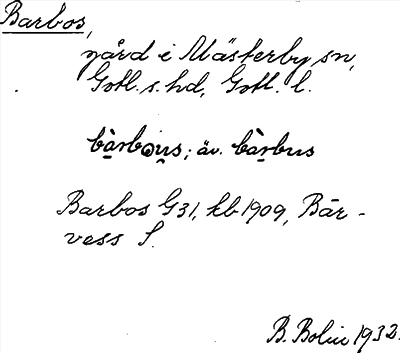 Barbos,
gård i Mästerby sn,
Gotl. s. hd, Gotl. l.
bàrbǫu̯s; äv. bàrbus
Barbos G31, kb 1909, Bār-
vess S.
B. Bolin 1932.